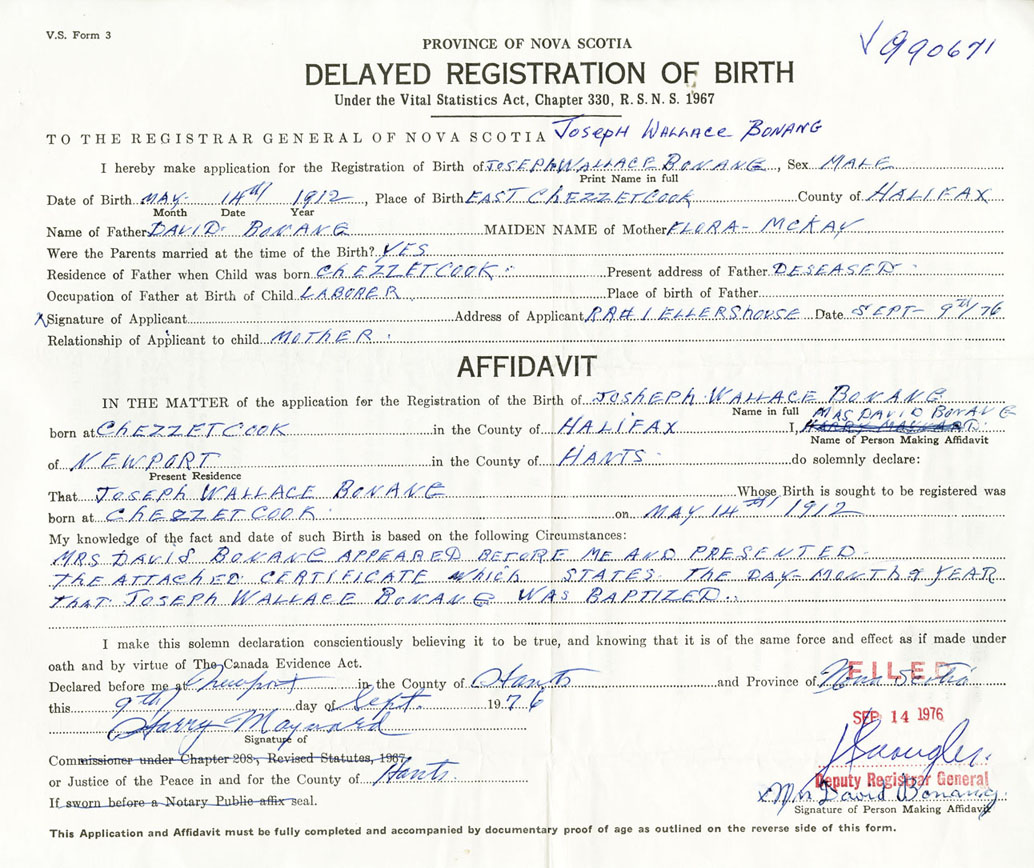 V.S. Form 3
√990671
PROVINCE OF NOVA SCOTIA
DELAYED REGISTRATION OF BIRTH
Under the Vital Statistics Act, Chapter 330, R. S. N. S. 1967
TO THE REGISTRAR GENERAL OF NOVA SCOTIA Joseph Wallace Bonang
I hereby make application for the Registration of Birth of JOSEPH WALLACE BONANG, Sex MALE
Print Name in full
Date of Birth MAY- 14TH 1912, Place of Birth EAST CHEZZETCOOK County of HALIFAX
Month Date Year
Name of Father DAVID BONANG MAIDEN NAME of Mother FLORA- MCKAY
Were the Parents married at the time of the Birth? YES
Residence of Father when Child was born CHEZZETCOOK. Present address of Father DESEASED.
Occupation of Father at Birth of Child LABORER Place of birth of Father
X Signature of Applicant Address of Applicant RR#1 ELLERSHOUSE Date SEPT- 9TH/76
Relationship of Applicant to child MOTHER.
AFFIDAVIT
IN THE MATTER of the application for the Registration of the Birth of JOSHEPH WALLACE BONANG
Name in full MRS DAVID BONANG
born at CHEZZETCOOK in the County of HALIFAX I, HARRY MAYNARD.
Name of Person Making Affidavit
of NEWPORT in the County of HANTS. do solemnly declare:
Present Residence
That JOSEPH WALLACE BONANG Whose Birth is sought to be registered was
born at CHEZZETCOOK. on MAY 14TH 1912
My knowledge of the fact and date of such Birth is based on the following Circumstances:
MRS DAVID BONANG APPEARED BEFORE ME AND PRESENTED.
THE ATTACHED CERTIFICATE which STATES. THE DAY-MONTH & YEAR
THAT JOSEPH WALLACE BONANG WAS BAPTIZED..
I make this solemn declaration conscientiously believing it to be true, and knowing that it is of the same force and effect as if made under
oath and by virtue of The Canada Evidence Act.
Declared before me at Newport in the County of Hants and Province of Nova Scotia
FILED
this 9th day of Sept. 1976
SEP 14 1976
Harry Maynard
Signature of
Commissioner under Chapter 208, Revised Statutes, 1967
or Justice of the Peace in and for the County of Hants.
Deputy Registrar General
x Mrs David Bonang.
If sworn before a Notary Public affix seal.
Signature of Person Making Affidavit
This Application and Affidavit must be fully completed and accompanied by documentary proof of age as outlined on the reverse side of this form.